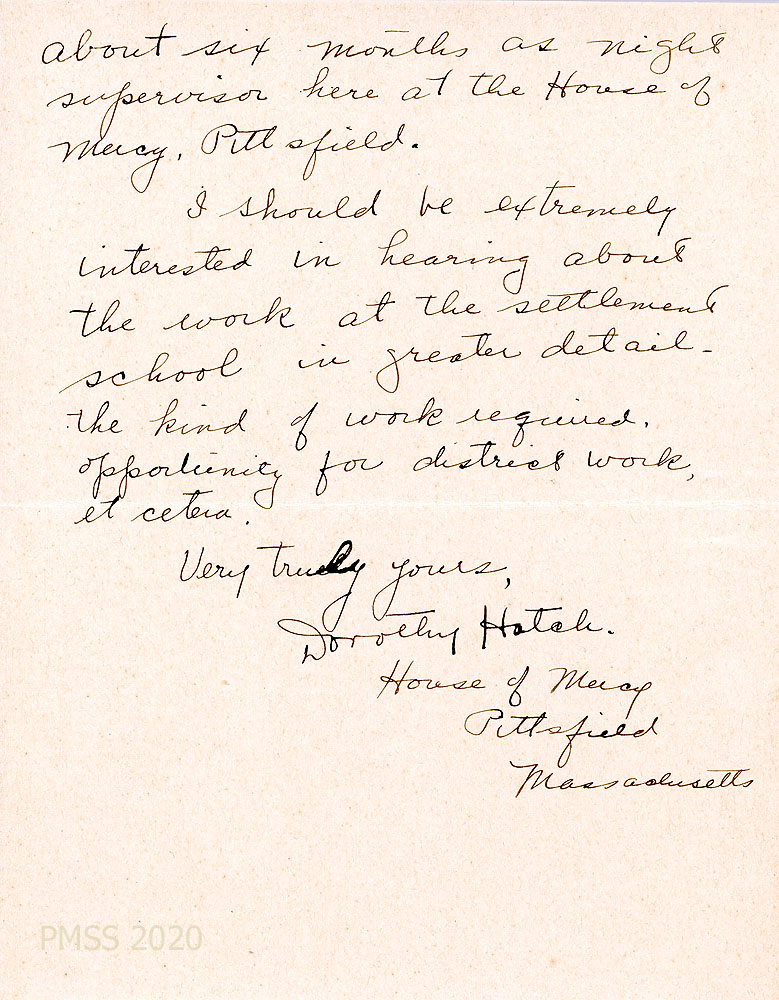 about six months as night
supervisor here at the House of
Mercy, Pittsfield.
I should be extremely
interested in hearing about
the work at the settlement
school in greater detail -
the kind of work required.
opportunity for district work,
et cetera.
Very truly yours,
Dorothy Hatch.
House of Mercy
Pittsfield
Massachusetts
PMSS 2020